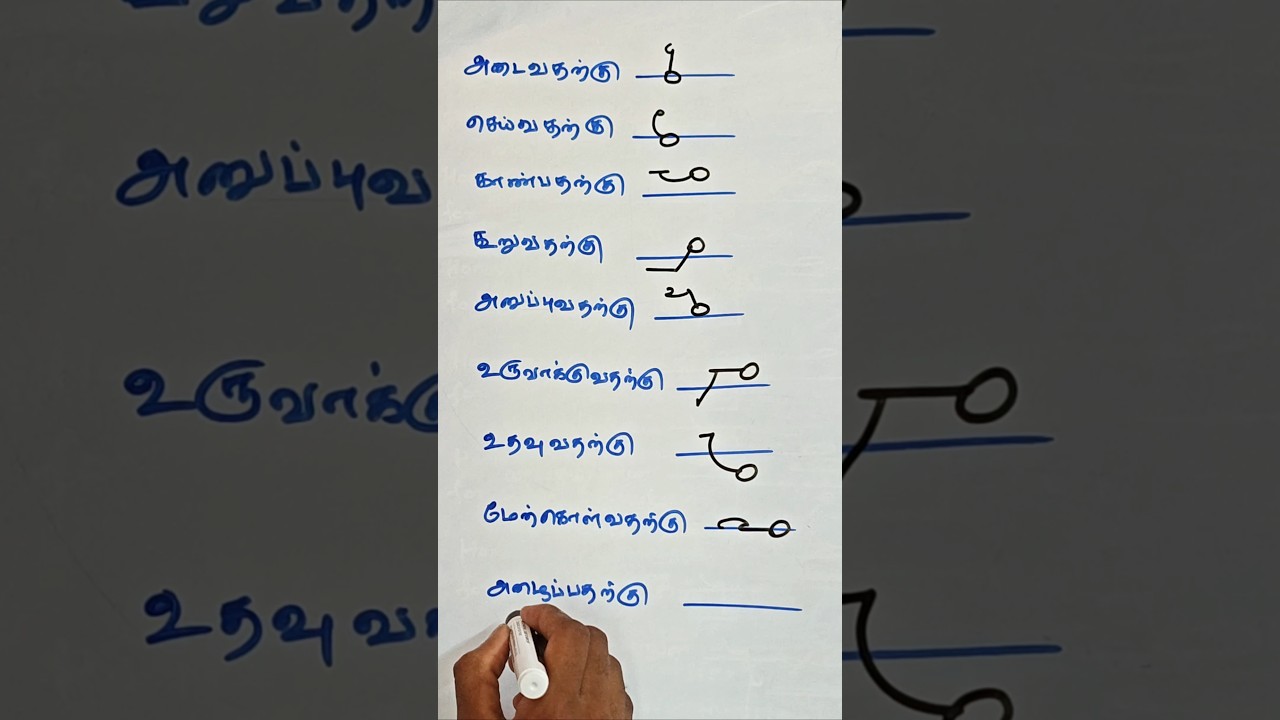 அடைவதற்கு
செய்வதற்கு
காண்பதற்கு
கூறுவதற்கு
அனுப்புவதற்கு
உருவாக்குவதற்கு
உதவுவதற்கு
மேற்கொள்வதற்கு
அழைப்பதற்கு